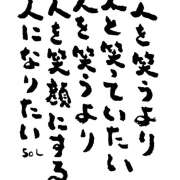 人を笑うより
人と笑っていたい
人を笑うより
人を笑顔にする
人になりたい
SOL